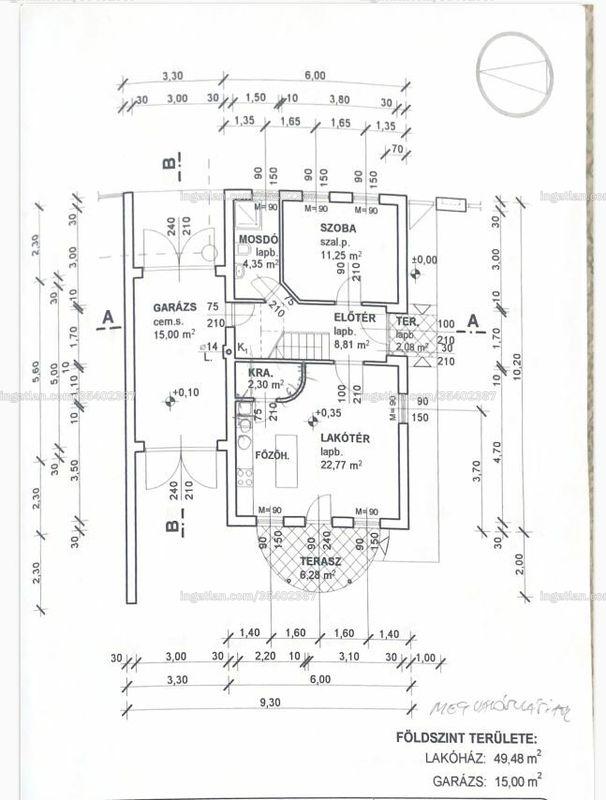 ingatlan.com/35402387
3,30 6,00
30 3,00 30 1,50 10 3,80 30
1,35 1,65 1,65 1,35
70
B
90 150 90 150 90 150
M=90 M=90 M=90
240 210
MOSDÓ
lapb.
4,35 m²
SZOBA
szal.p.
11,25 m²
90 210
±0,00
75 210
A
GARÁZS
cem.s.
15,00 m²
75 210
ELŐTÉR
lapb.
8,81 m²
TER.
lapb
2,08 m²
100 210
30 210
A
⌀14
K1
KRA.
2,30 m²
100 210
+0,10
75 210
+0,35
M=90
90 150
LAKÓTÉR
lapb.
22,77 m²
FŐZŐH.
240 210
B
M=90 M=90
90 150 90 240 90 150
TERASZ
6,28 m²
2,30 5,60 2,30 2,30
30 5,00 30
30 3,75 10 1,70 10 1,10 3,50 30
30 3,75 10 1,70 10 4,70 30
10,20
3,70
2,00
1,40 1,60 1,60 1,40
30 3,00 30 2,20 10 3,10 30 1,00
3,30 6,00
9,30
FÖLDSZINT TERÜLETE:
LAKÓHÁZ: 49,48 m²
GARÁZS: 15,00 m²